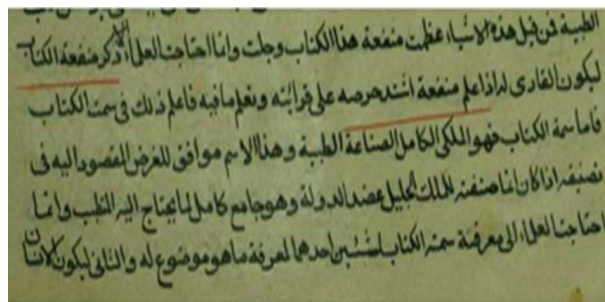 الطبية فمن قبل هذه الاشياء عظمت منفعة هذا الكتاب وجلت وانما احتاجت العلماء الى ذكر منفعة الكتاب
ليكون القارى له اذا علم منفعة اشتد حرصه على قرائته وتعلم ما فيه فاعلم ذلك فى سمت الكتاب
فاما سمة الكتاب فهو الملكى الكامل الصناعة الطبية وهذا الاسم موافق للغرض المقصود اليه فى
تصنيفه اذا كان انما صنفته للملك الجليل عضد الدولة وهو جامع كامل لما يحتاج اليه التطبب وانما
احتاجت العلماء الى معرفة سمة الكتاب لشيئين احدهما لمعرفة ما هو موضوع له والثانى ليكون الانسان